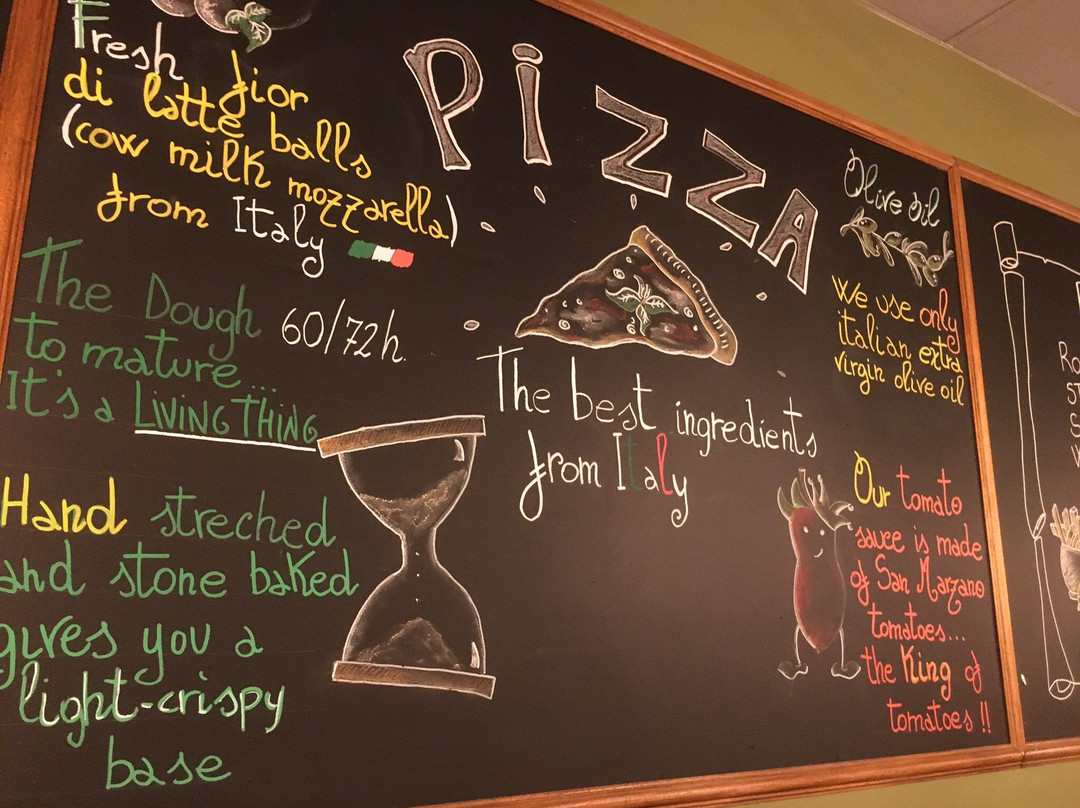 Fresh fior
di latte balls
(cow milk mozzarella)
from Italy
The Dough 60/72h.
to mature...
It's a LIVING THING
Hand streched
and stone baked
gives you a
light-crispy
base
PiZZA
The best ingredients
from ITaly
Olive oil
We use only
italian extra
virgin olive oil
Our tomato
sauce is made
of San Marzano
tomatoes...
the King of
tomatoes!!